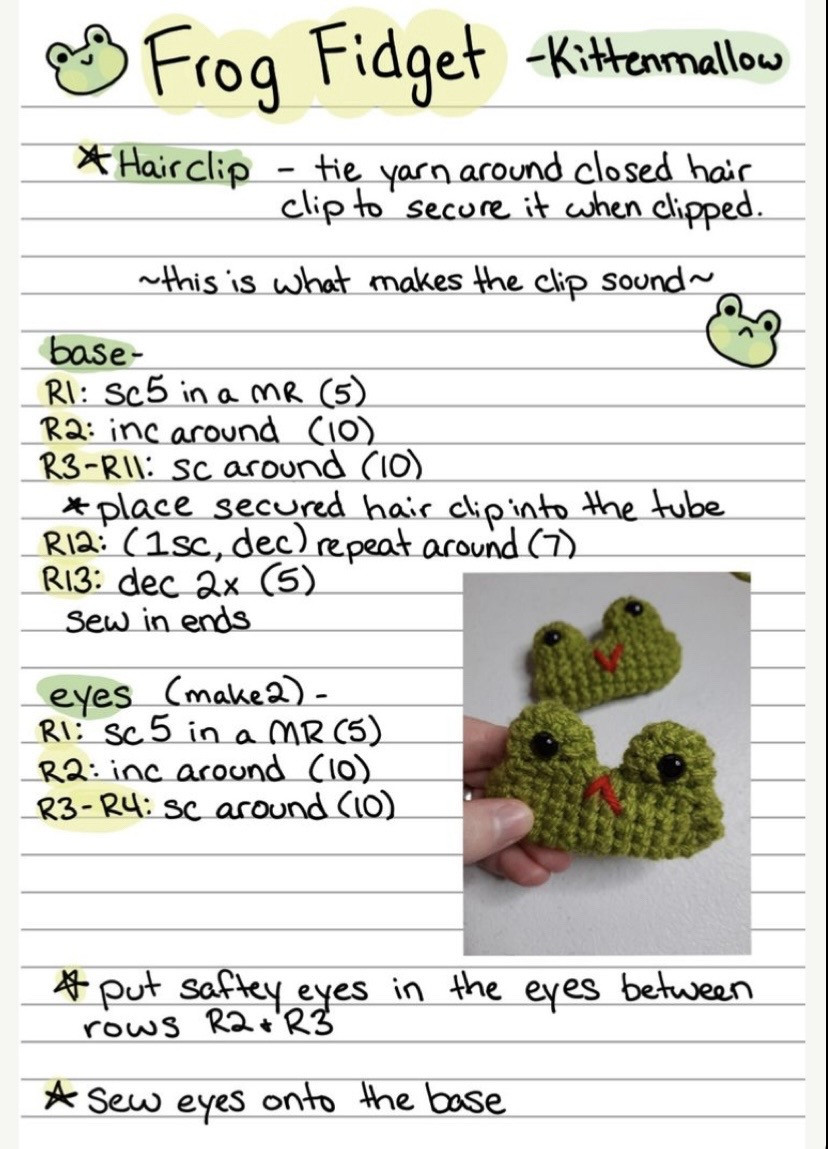 Frog Fidget -Kittenmallow
☆ Hair clip - tie yarn around closed hair
clip to secure it when clipped.
~this is what makes the clip sound~
base-
R1: sc5 in a MR (5)
R2: inc around (10)
R3-R11: sc around (10)
* place secured hair clip into the tube
R12: (1sc, dec) repeat around (7)
R13: dec 2x (5)
sew in ends
eyes (make 2) -
R1: sc 5 in a MR (5)
R2: inc around (10)
R3-R4: sc around (10)
☆ put saftey eyes in the eyes between
rows R2 + R3
☆ Sew eyes onto the base